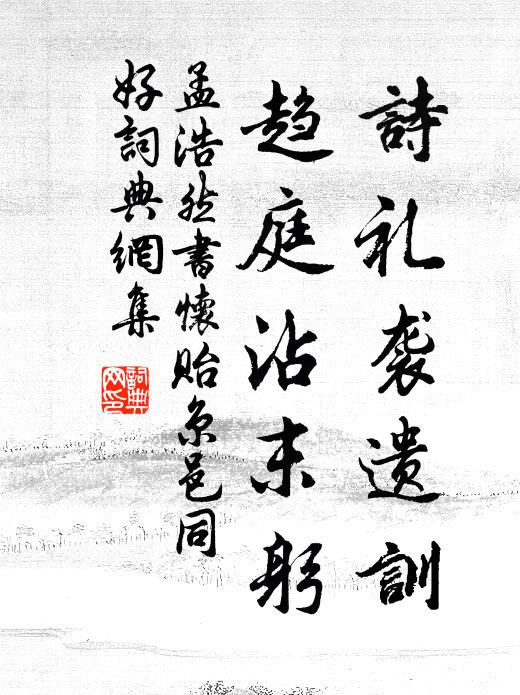 詩礼袭遗訓
趋庭沾末躬
孟浩然書懷贻京邑同
好詞典網集
詞典
网印